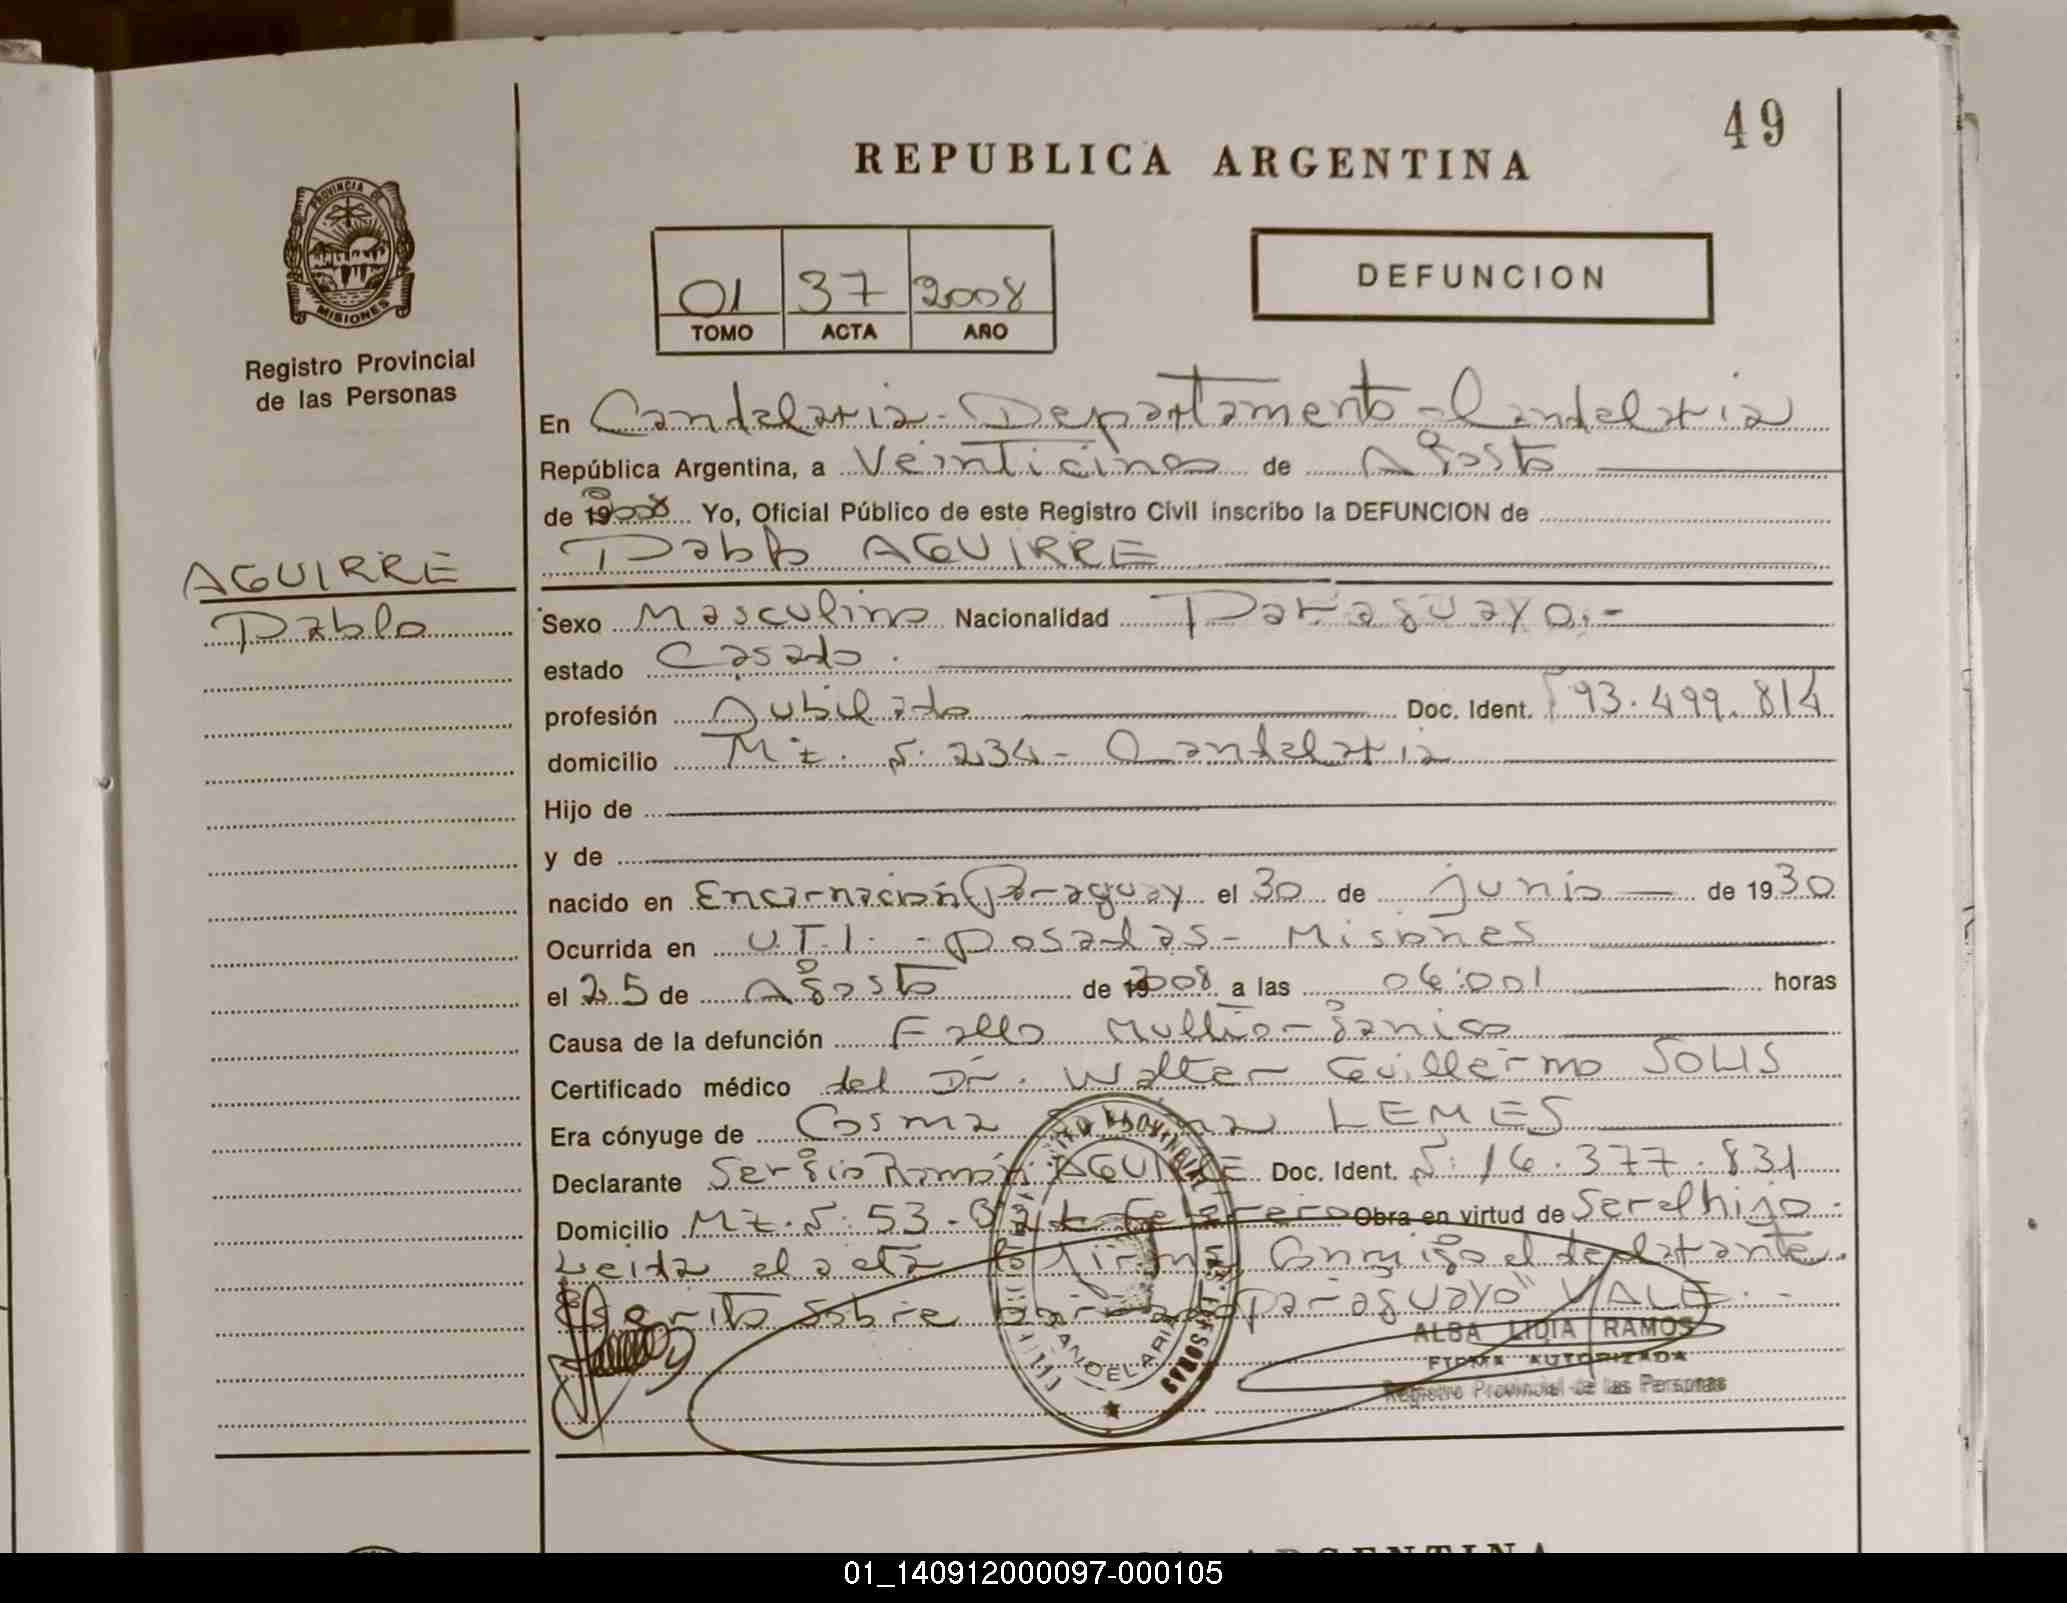 49
REPUBLICA ARGENTINA
PROVINCIA DE
MISIONES
Registro Provincial
de las Personas
01 37 2008
TOMO ACTA AÑO
DEFUNCION
En Candelaria - Departamento - Candelaria
República Argentina, a Veinticinco de Agosto
de 2008 Yo, Oficial Público de este Registro Civil inscribo la DEFUNCION de
Pablo AGUIRRE
AGUIRRE
Pablo
Sexo Masculino Nacionalidad Paraguayo.-
estado Casado.
profesión Jubilado Doc. Ident. 93.499.814
domicilio Mz. Nº 234 - Candelaria
Hijo de
y de
nacido en Encarnación Paraguay el 30 de junio de 1930
Ocurrida en U.T.I. - Posadas - Misiones
el 25 de Agosto de 2008 a las 06:00 horas
Causa de la defunción Fallo Multiorganico
Certificado médico del Dr. Walter Guillermo SOLIS
Era cónyuge de Cosma LEMES
Declarante Sergio Ramón AGUIRRE Doc. Ident. Nº 16.377.831
Domicilio Mz. Nº 53 - Febrero Obra en virtud de Ser el hijo.
Leida el acta la firma Conmigo el declarante.
Escrito sobre "paraguayo" VALE.-
CANDELARIA
ALBA LIDIA RAMOS
FIRMA AUTORIZADA
Registro Provincial de las Personas
01_140912000097-000105